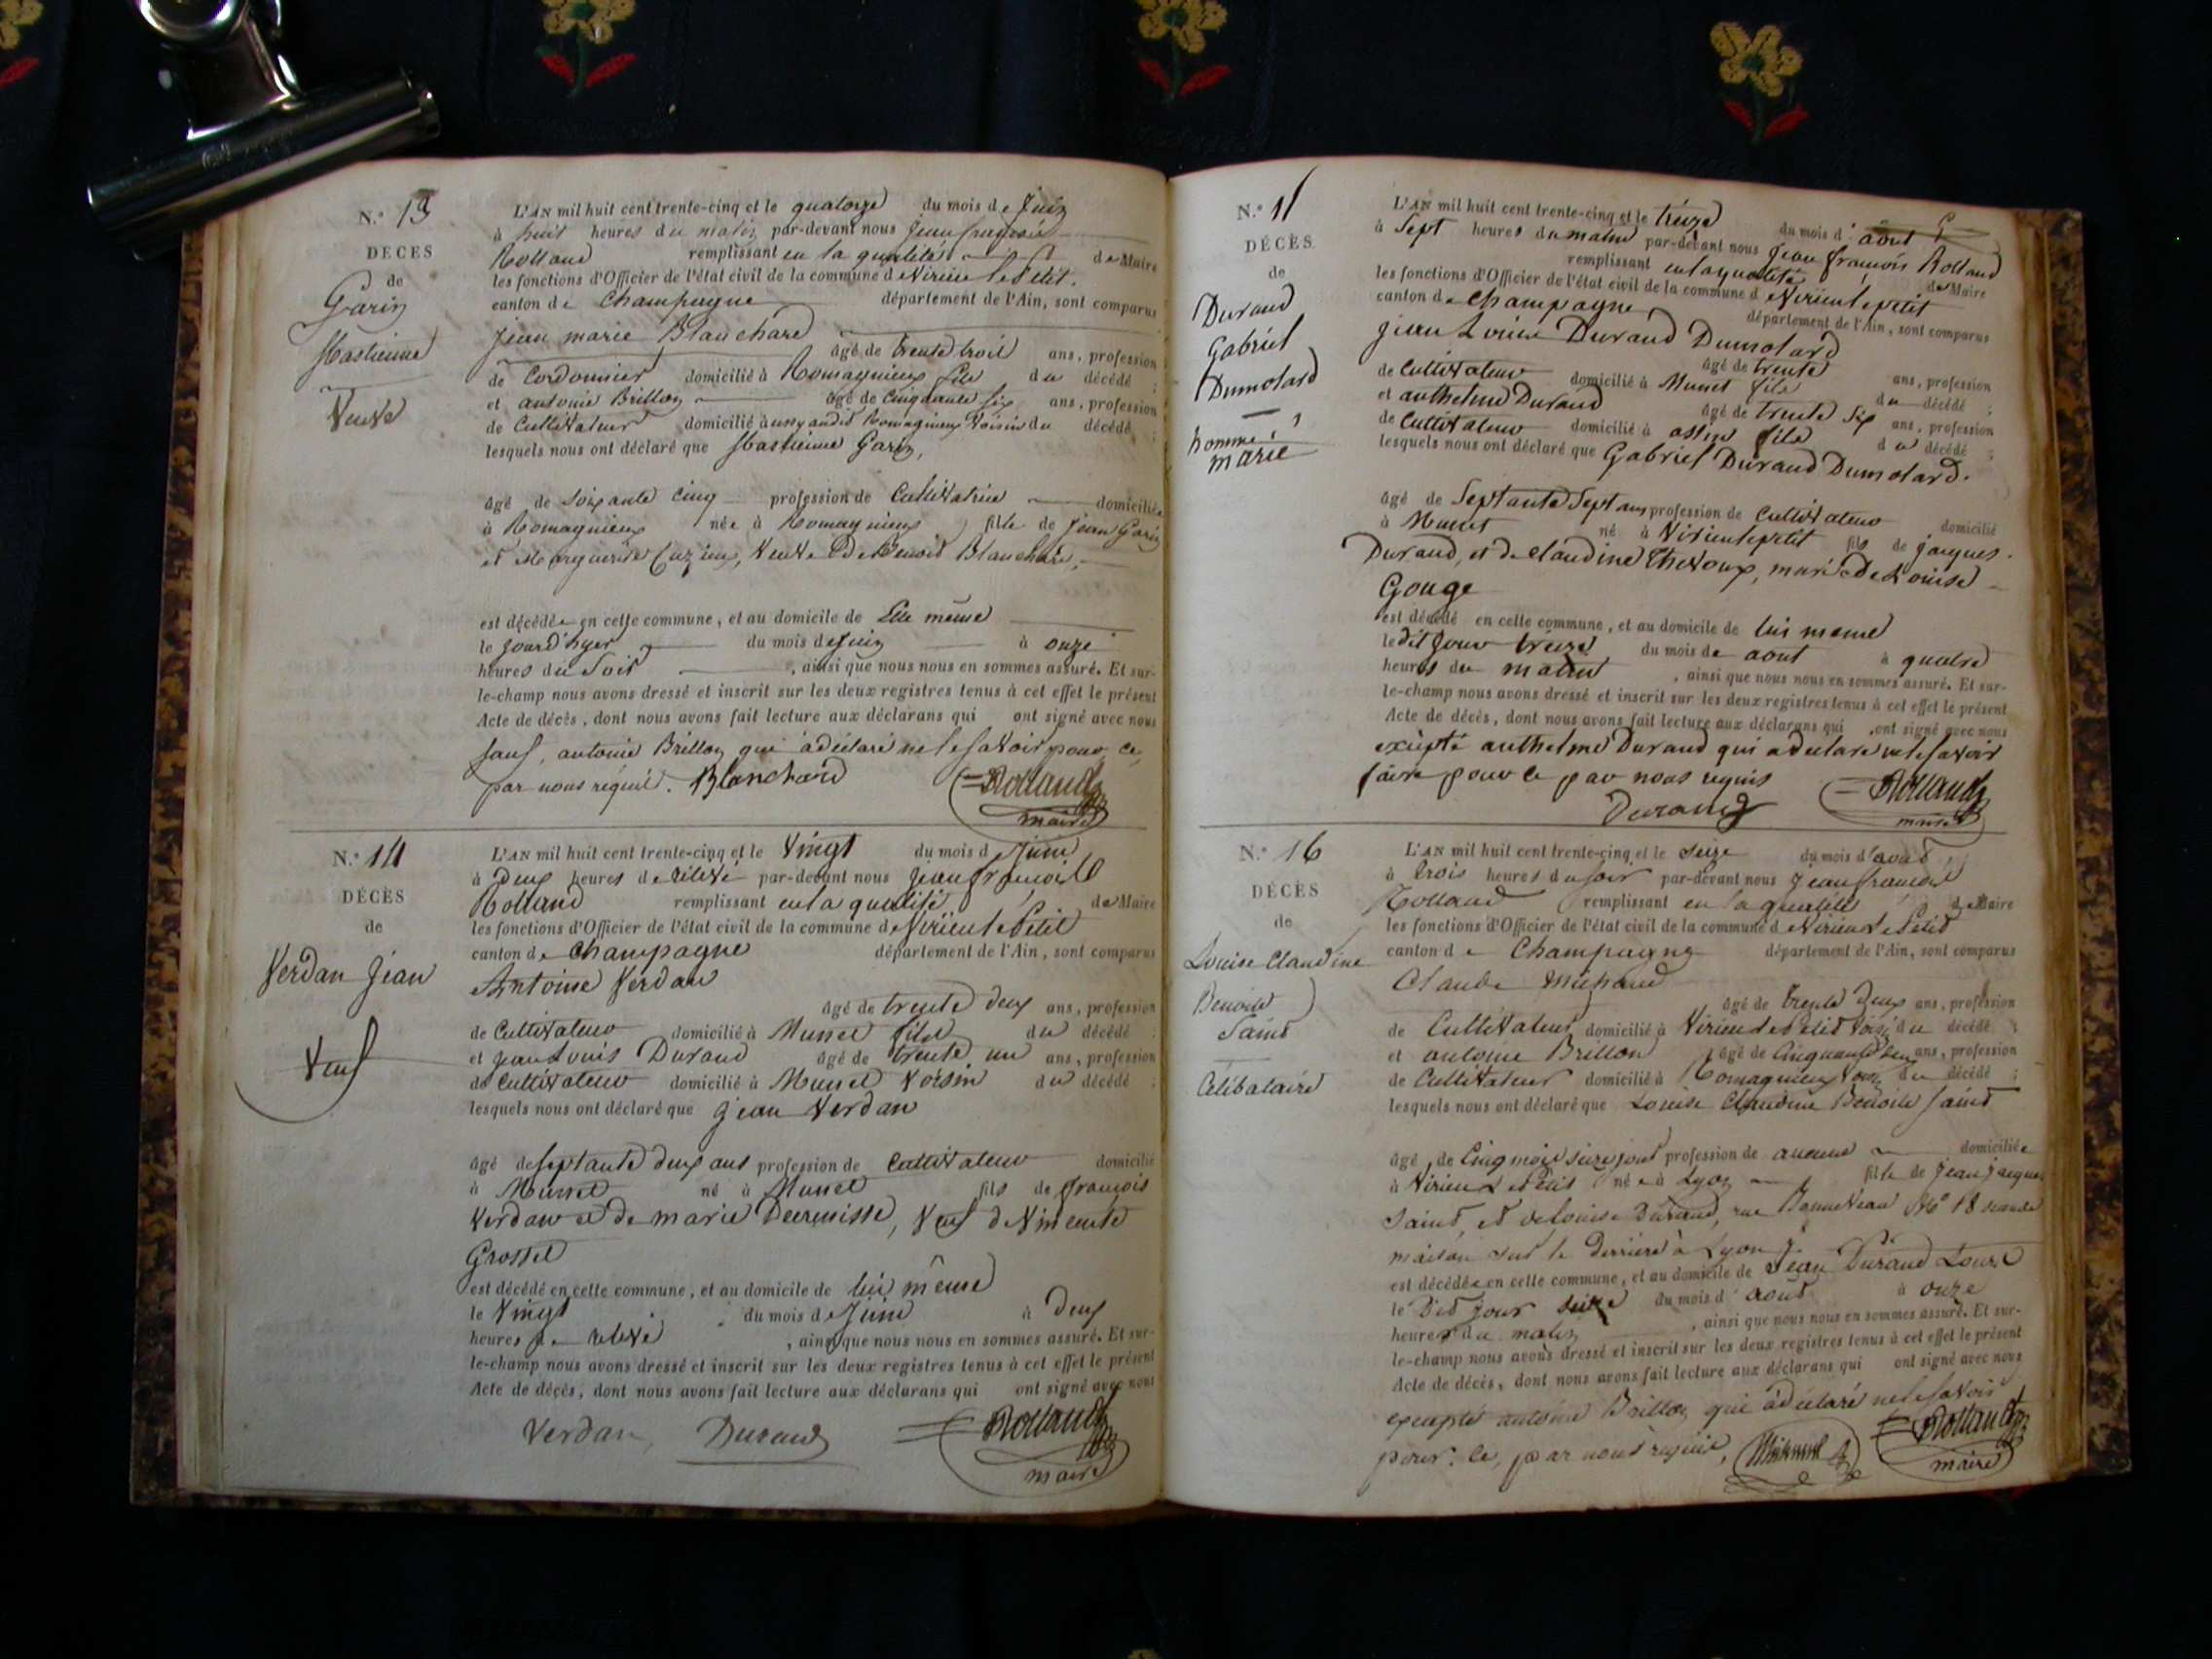 N.° 13
DÉCÈS
de
Garin
Mastienne
Veuve
L'AN mil huit cent trente-cinq et le quatorze du mois de Juin
à huit heures du matin par-devant nous jean françois
Rolland remplissant en la qualité de Maire
les fonctions d'Officier de l'état civil de la commune de Virieu le Petit.
canton de Champagne département de l'Ain, sont comparus
jean marie Blanchard
âgé de trente trois ans, profession
de Cordonnier domicilié à Romagnieux fils du décédé ;
et antoine Brillon âgé de Cinquante six ans, profession
de Cultivateur domicilié à Romagnieux Voisin du décédé ;
lesquels nous ont déclaré que Mastienne Garin,
âgé de Soixante Cinq profession de Cultivatrice domiciliée
à Romagnieux née à Romagnieux fille de jean Garin
et Marguerite Cuzieux, Veuve de Benoit Blanchard,
est décédée en cette commune, et au domicile de Elle même
le jour d'hyer du mois de juin à onze
heures du Soir , ainsi que nous nous en sommes assuré. Et sur-
le-champ nous avons dressé et inscrit sur les deux registres tenus à cet effet le présent
Acte de décès, dont nous avons fait lecture aux déclarans qui ont signé avec nous
sauf, antoine Brillon qui a déclaré ne le savoir pour ce
par nous réquis. Blanchard Rolland
maire
N.° 14
DÉCÈS
de
Verdan Jean
Veuf
L'AN mil huit cent trente-cinq et le Vingt du mois d Juin
à Deux heures de relevé par-devant nous jean françois
Rolland remplissant en la qualité de Maire
les fonctions d'Officier de l'état civil de la commune de Virieu le Petit
canton de Champagne département de l'Ain, sont comparus
Antoine Verdan
âgé de trente deux ans, profession
de Cultivateur domicilié à Munet fils du décédé ;
et jean Louis Durand âgé de trente un ans, profession
de Cultivateur domicilié à Munet Voisin du décédé ;
lesquels nous ont déclaré que jean Verdan
âgé de septante deux ans profession de Cultivateur domicilié
à Munet né à Munet fils de françois
Verdan et de marie Decrenisse, Veuf de Vincente
Grosset
est décédé en cette commune, et au domicile de lui même
le Vingt du mois de Juin à Deux
heures de relevé , ainsi que nous nous en sommes assuré. Et sur-
le-champ nous avons dressé et inscrit sur les deux registres tenus à cet effet le présent
Acte de décès, dont nous avons fait lecture aux déclarans qui ont signé avec nous
Verdan Durand Rolland
maire
N.° 15
DÉCÈS
de
Durand
Gabriel
Dumolard
homme
marié
L'AN mil huit cent trente-cinq et le treize du mois d' aout
à Sept heures du matin par-devant nous jean françois Rolland
remplissant en la qualité de Maire
les fonctions d'Officier de l'état civil de la commune de Virieu le petit
canton de Champagne département de l'Ain, sont comparus
jean Louis Durand Dumolard
âgé de trente ans, profession
de Cultivateur domicilié à Munet fils du décédé ;
et anthelme Durand âgé de trente six ans, profession
de Cultivateur domicilié à assin fils du décédé ;
lesquels nous ont déclaré que Gabriel Durand Dumolard.
âgé de Septante Sept ans profession de Cultivateur domicilié
à Munet né à Virieu le petit fils de jacques
Durand, et de claudine Thevoux, marié de Louise
Gouge
est décédé en cette commune, et au domicile de lui meme
le dit jour treize du mois de aout à quatre
heures du matin , ainsi que nous nous en sommes assuré. Et sur-
le-champ nous avons dressé et inscrit sur les deux registres tenus à cet effet le présent
Acte de décès, dont nous avons fait lecture aux déclarans qui ont signé avec nous
excèpté anthelme Durand qui a declare ne le savoir
faire pour ce par nous requis
Durand Rolland
maire
N.° 16
DÉCÈS
de
Louise Claudine
Benoite
Saint
Célibataire
L'AN mil huit cent trente-cinq et le seize du mois d'aout
à trois heures du soir par-devant nous jean françois
Rolland remplissant en la qualité de Maire
les fonctions d'Officier de l'état civil de la commune de Virieu le Petit
canton de Champagne département de l'Ain, sont comparus
Claude Michaud
âgé de trente deux ans, profession
de Cultivateur domicilié à Virieu le Petit Voisin du décédé ;
et antoine Brillon âgé de Cinquante ans, profession
de Cultivateur domicilié à Romagnieux Voisin du décédé ;
lesquels nous ont déclaré que Louise Claudine Benoite Saint
âgé de Cinq mois seize jours profession de aucune domiciliée
à Virieu le Petit née à Lyon fille de jean jacques
Saint, et de Louise Durand, rue Bonneveau N° 18 seconde
maison sur le derrière à Lyon
est décédée en cette commune, et au domicile de Jean Durand Louis
le Dit jour seize du mois d' aout à onze
heures du matin , ainsi que nous nous en sommes assuré. Et sur-
le-champ nous avons dressé et inscrit sur les deux registres tenus à cet effet le présent
Acte de décès, dont nous avons fait lecture aux déclarans qui ont signé avec nous
excepté antoine Brillon qui a déclaré ne le savoir
pour ce, par nous requis, Michaud Rolland
maire